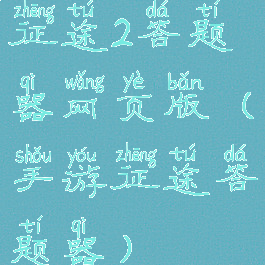 zhēng tú dá tí
征途2答题
qì wǎng yè bǎn
器网页版(
shǒu yóu zhēng tú dá
手游征途答
tí qì
题器)